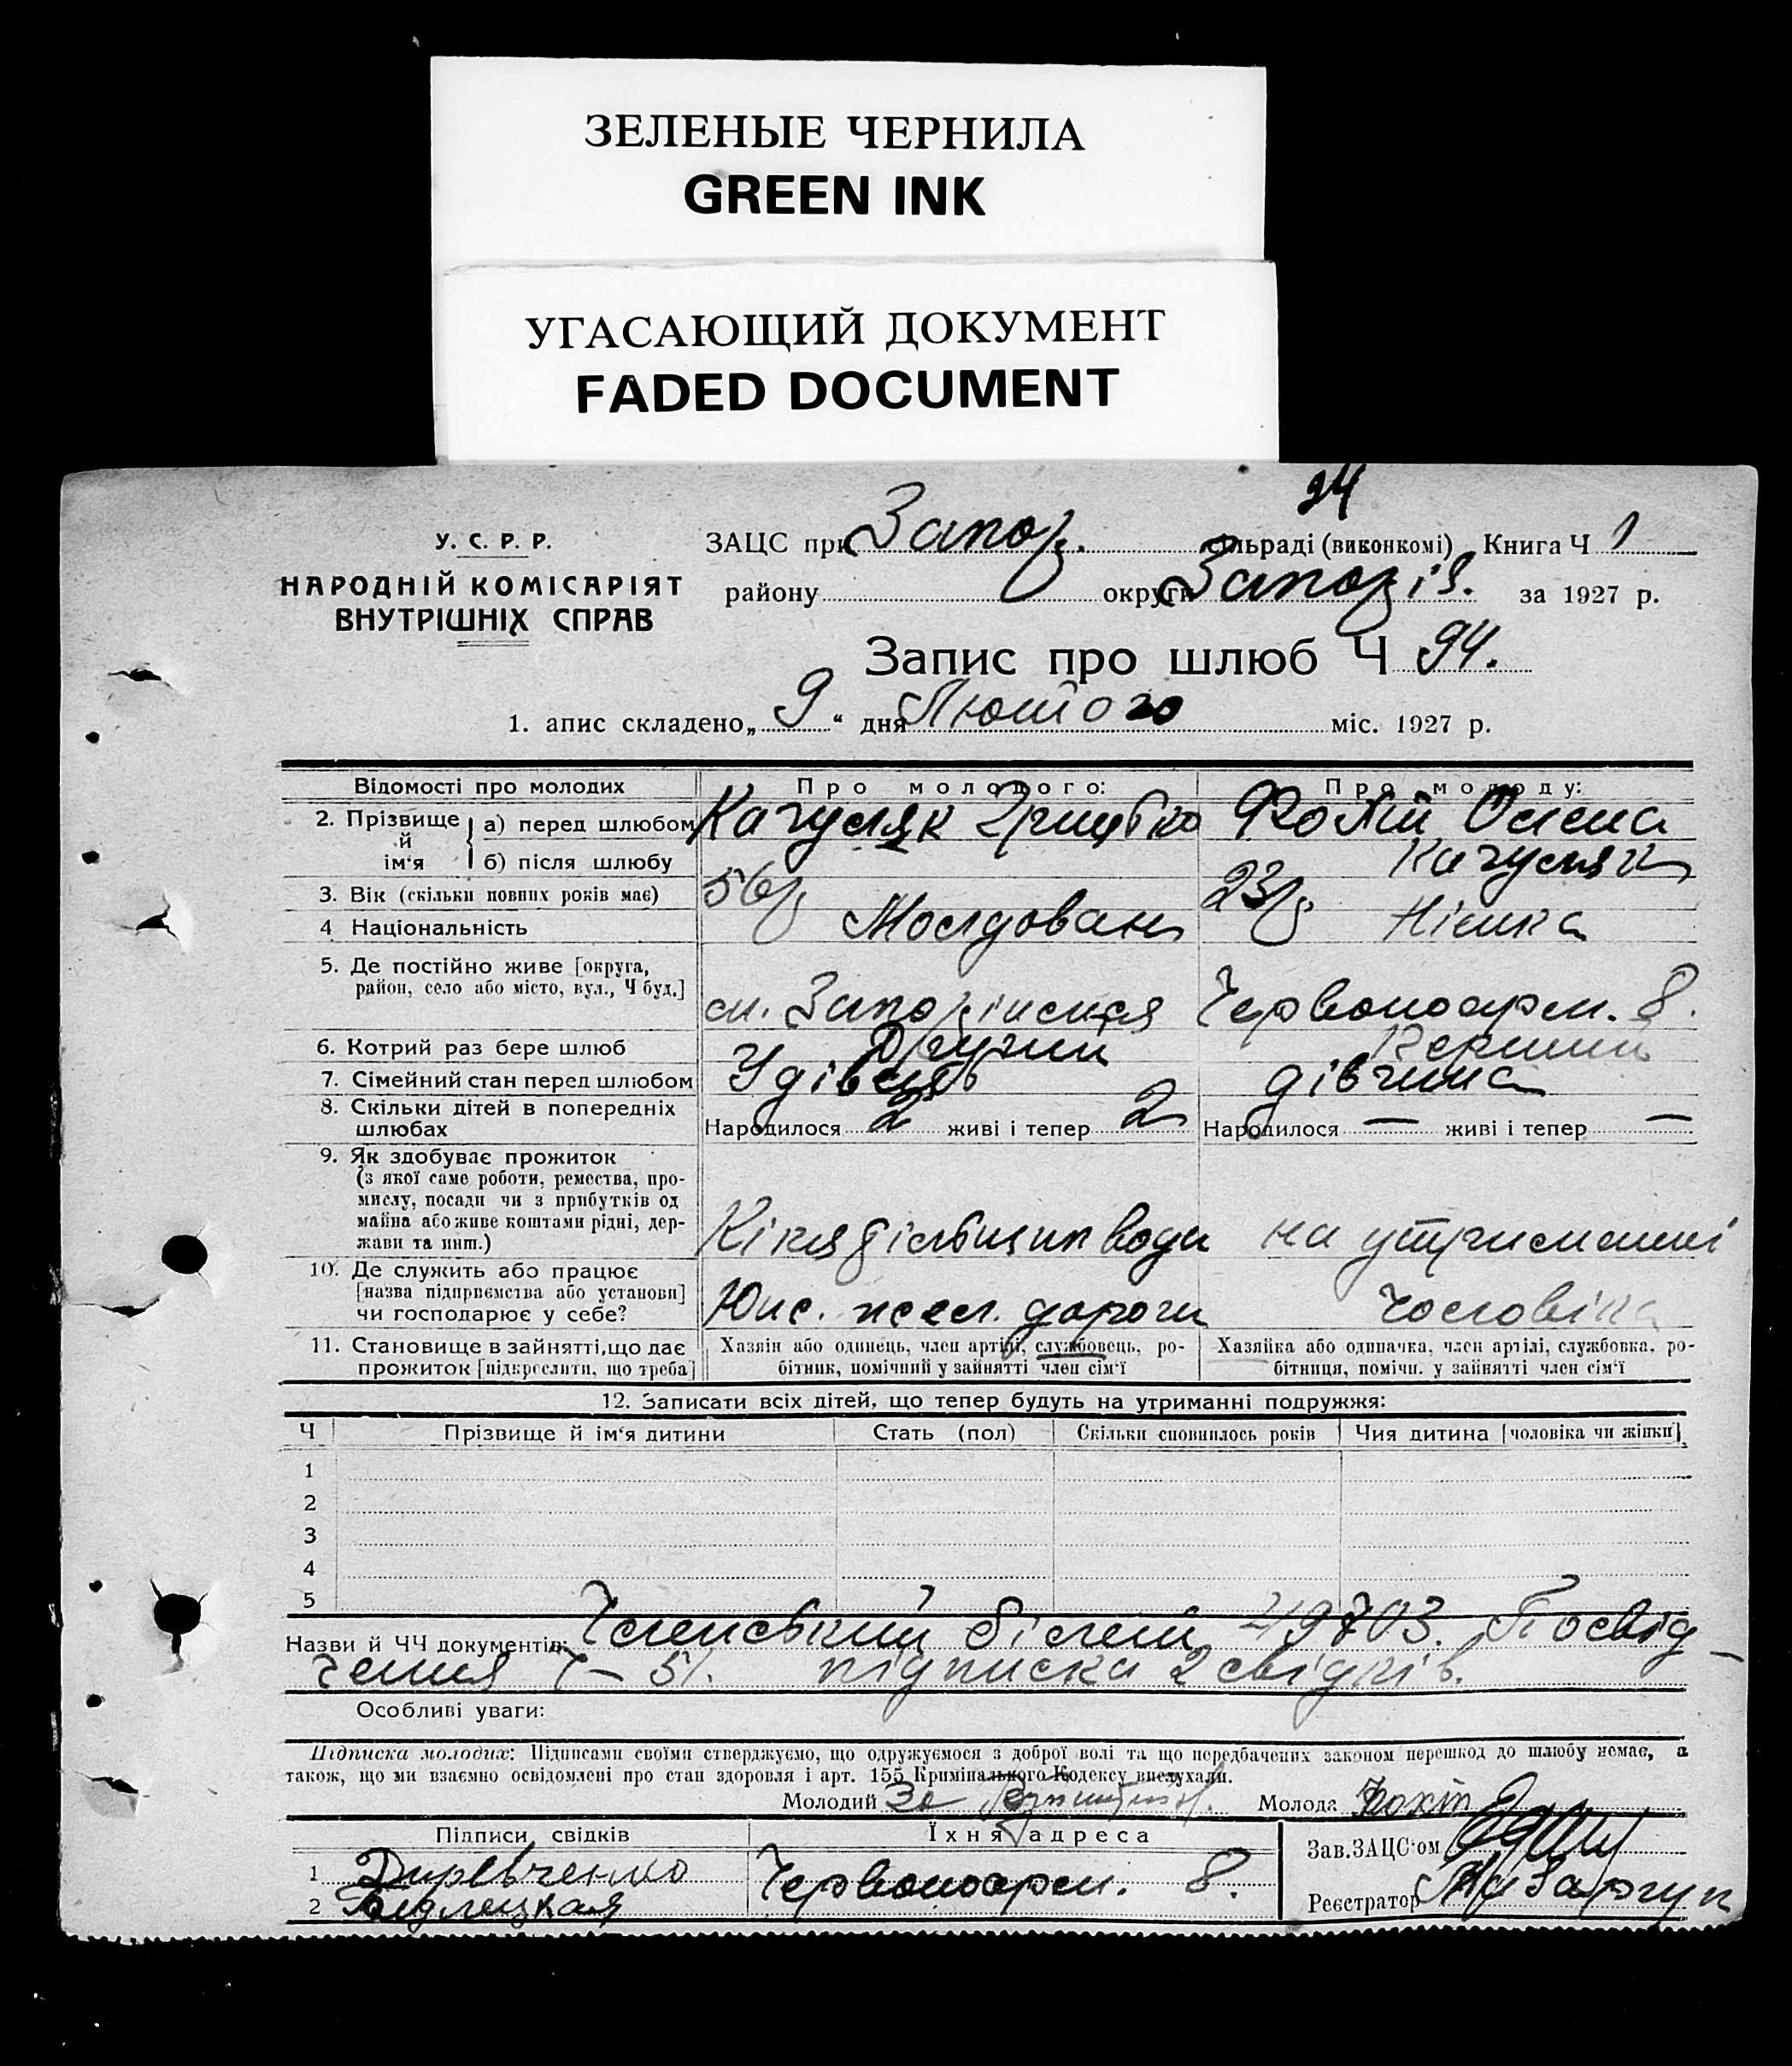 ЗЕЛЕНЫЕ ЧЕРНИЛА
GREEN INK
УГАСАЮЩИЙ ДОКУМЕНТ
FADED DOCUMENT
94
У. С. Р. Р.
НАРОДНІЙ КОМІСАРІЯТ
ВНУТРІШНІХ СПРАВ
ЗАЦС при Запор. сільраді (виконкомі) Книга Ч 1
району округи Запоріз. за 1927 р.
Запис про шлюб Ч 94.
1. апис складено „ 9 “ дня Лютого міс. 1927 р.
Відомості про молодих Про молодого: Про молоду:
2. Прізвище й ім‘я
а) перед шлюбом Олена
б) після шлюбу
3. Вік (скільки повних років має) 56 23
4 Національність Молдован Німка
5. Де постійно живе [округа,
район, село або місто, вул., Ч буд.]
м. Запоріжжя Червоноарм. 8.
6. Котрий раз бере шлюб Другий Перший
7. Сімейний стан перед шлюбом Удівець дівчина
8. Скільки дітей в попередніх
шлюбах
Народилося 2 живі і тепер 2 Народилося — живі і тепер —
9. Як здобуває прожиток
(з якої саме роботи, ремества, про-
мислу, посади чи з прибутків од
майна або живе коштами рідні, дер-
жави та инш.)
на утриманні
10. Де служить або працює
[назва підприємства або установи]
чи господарює у себе?
дороги чоловіка
11. Становище в зайнятті, що дає
прожиток [підкреслити, що треба]
Хазяїн або одинець, член артілі, службовець, ро-
бітник, помічний у зайнятті член сім‘ї
Хазяйка або одиначка, член артілі, службовка, ро-
бітниця, помічн. у зайнятті член сім‘ї
12. Записати всіх дітей, що тепер будуть на утриманні подружжя:
Ч Прізвище й ім‘я дитини Стать (пол) Скільки сповнилось років Чия дитина [чоловіка чи жінки]
1
2
3
4
5
Назви й ЧЧ документів: Членський білет 49703. Посвід-
чення Ч– 51. підписка 2 свідків.
Особливі уваги:
Підписка молодих: Підписами своїми стверджуємо, що одружуємося з доброї волі та що передбачених законом перешкод до шлюбу немає, а
також, що ми взаємно освідомлені про стан здоровля і арт. 155 Кримінального Кодексу вислухали.
Молодий За Молода
Підписи свідків Їхня адреса Зав.ЗАЦС‘ом
1 Червоноарм. 8.
2 Реєстратор